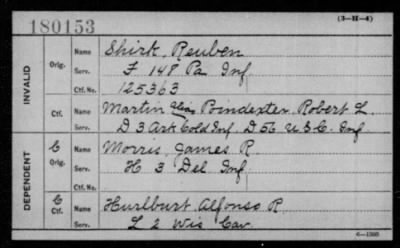 180153
(3-H-4)
INVALID
Orig.
Name Shirk, Reuben
Serv. F 148 Pa Inf
Ctf. No. 125363
Ctf.
Name Martin alias Poindexter, Robert L.
Serv. D 3 Ark Cold Inf. D 56 U.S.C. Inf
DEPENDENT
C Orig.
Name Morris, James R.
Serv. H 3 Del Inf
Ctf. No.
C Ctf.
Name Hurlburt Alfonso R
Serv. L 2 Wis Cav